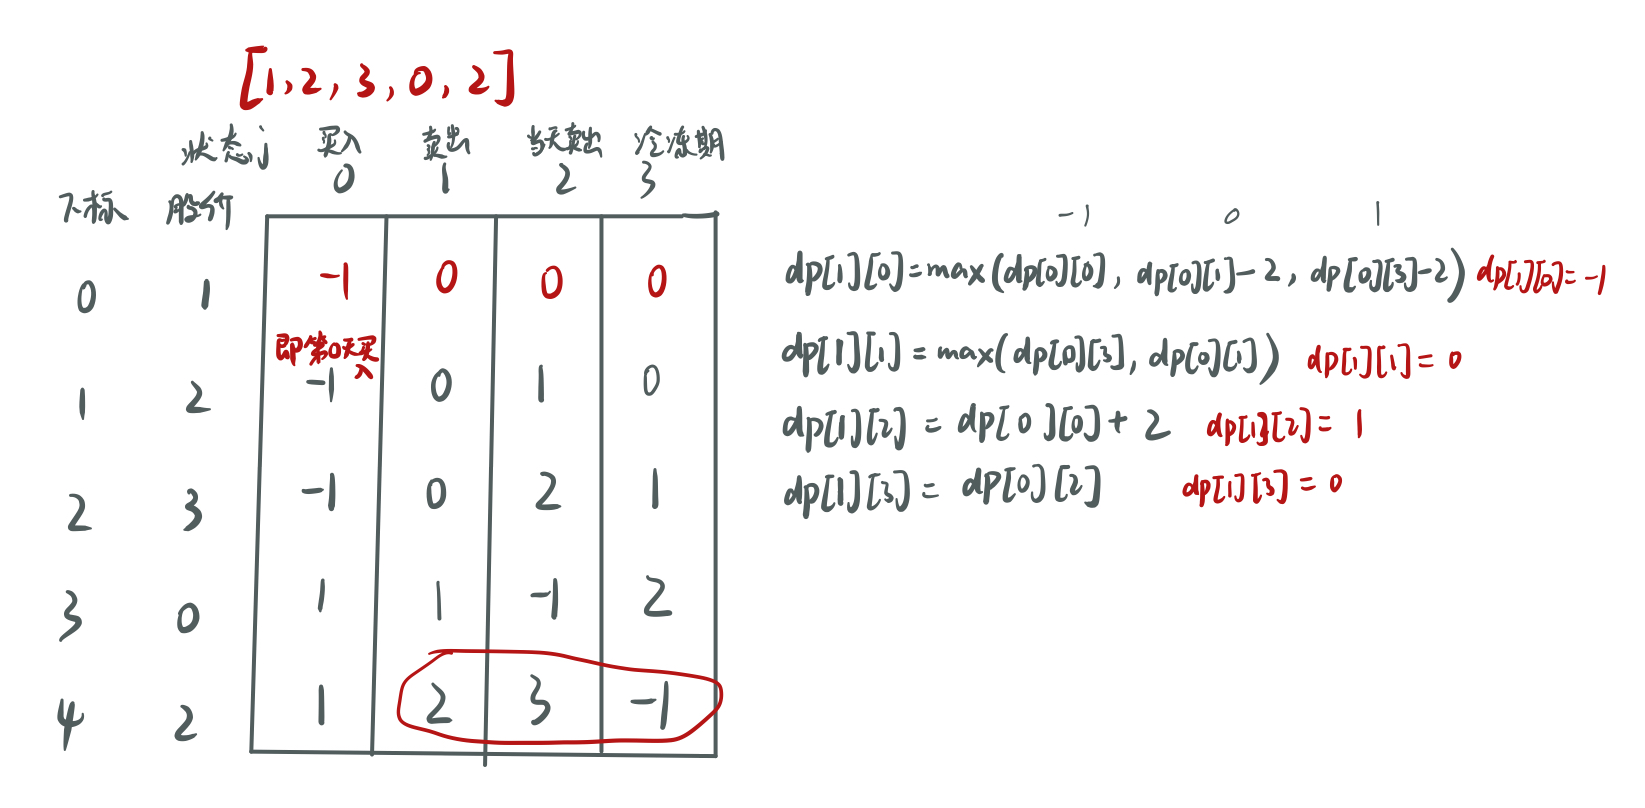 [1,2,3,0,2]
状态j 买入 卖出 当天卖出 冷冻期
0 1 2 3
下标 股价
0 1 -1 0 0 0
即第0天买
入
1 2 -1 0 1 0
2 3 -1 0 2 1
3 0 1 1 -1 2
4 2 1 2 3 -1
-1 0 1
dp[1][0]=max(dp[0][0], dp[0][1]-2, dp[0][3]-2) dp[1][0]=-1
dp[1][1]=max(dp[0][3], dp[0][1]) dp[1][1]=0
dp[1][2]=dp[0][0]+2 dp[1][2]=1
dp[1][3]=dp[0][2] dp[1][3]=0